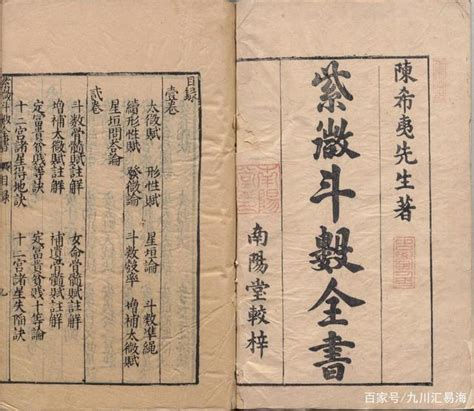 陳希夷先生著
紫微斗數全書
南陽堂較梓
目錄
壹卷
太微賦 形性賦 星垣論 斗數準繩
續形性賦 發微論 斗數彀率 增補太微賦
星垣問答論
貳卷
斗數骨髓賦註解 女命骨髓賦註解
增補太微賦註解 補遺骨髓賦註解
定富貴貧賤等訣 定富貴貧賤十等論
十二宮諸星得地訣 十二宮諸星失陷訣
目錄
百家号/九川汇易海